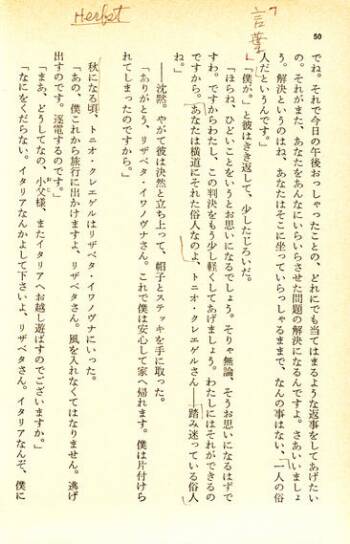 50
言葉
Herbst
でね。それで今日の午後おっしゃったことの、どれにでも当てはまるような返事をしてあげたい
の。それがまた、あなたをあんなにいらいらさせた問題の解決になるんですよ。さあいいましょ
う。解決というのはね、あなたはそこに坐っていらっしゃるままで、なんの事はない、一人の俗
人だというんです。」
「僕が。」と彼はきき返して、少したじろいだ。
「ほらね、ひどいことをいうとお思いになるでしょう。そりゃ無論、そうお思いになるはずで
すわ。ですからわたし、この判決をもう少し軽くしてあげましょう。わたしにはそれができるの
ですから。あなたは横道にそれた俗人なのよ、トニオ・クレエゲルさん――踏み迷っている俗人
ね。」
――沈黙。やがて彼は決然と立ち上って、帽子とステッキを手に取った。
「ありがとう、リザベタ・イワノヴナさん。これで僕は安心して家へ帰れます。僕は片付けら
れてしまったのですから。」
秋になる頃、トニオ・クレエゲルはリザベタ・イワノヴナにいった。
「あの、僕これから旅行に出かけますよ、リザベタさん。風を入れなくてはなりません。逃げ
出すのです。遂電するのです。」
「まあ、どうしてなの、小父様、またイタリアへお越し遊ばすのでございますか。」
「なにをくだらない。イタリアなんかよして下さいよ、リザベタさん。イタリアなんぞ、僕に